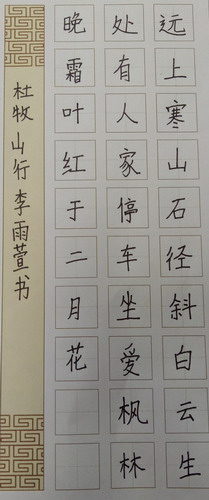 远上寒山石径斜白云生
处有人家停车坐爱枫林
晚霜叶红于二月花
杜牧山行李雨萱书